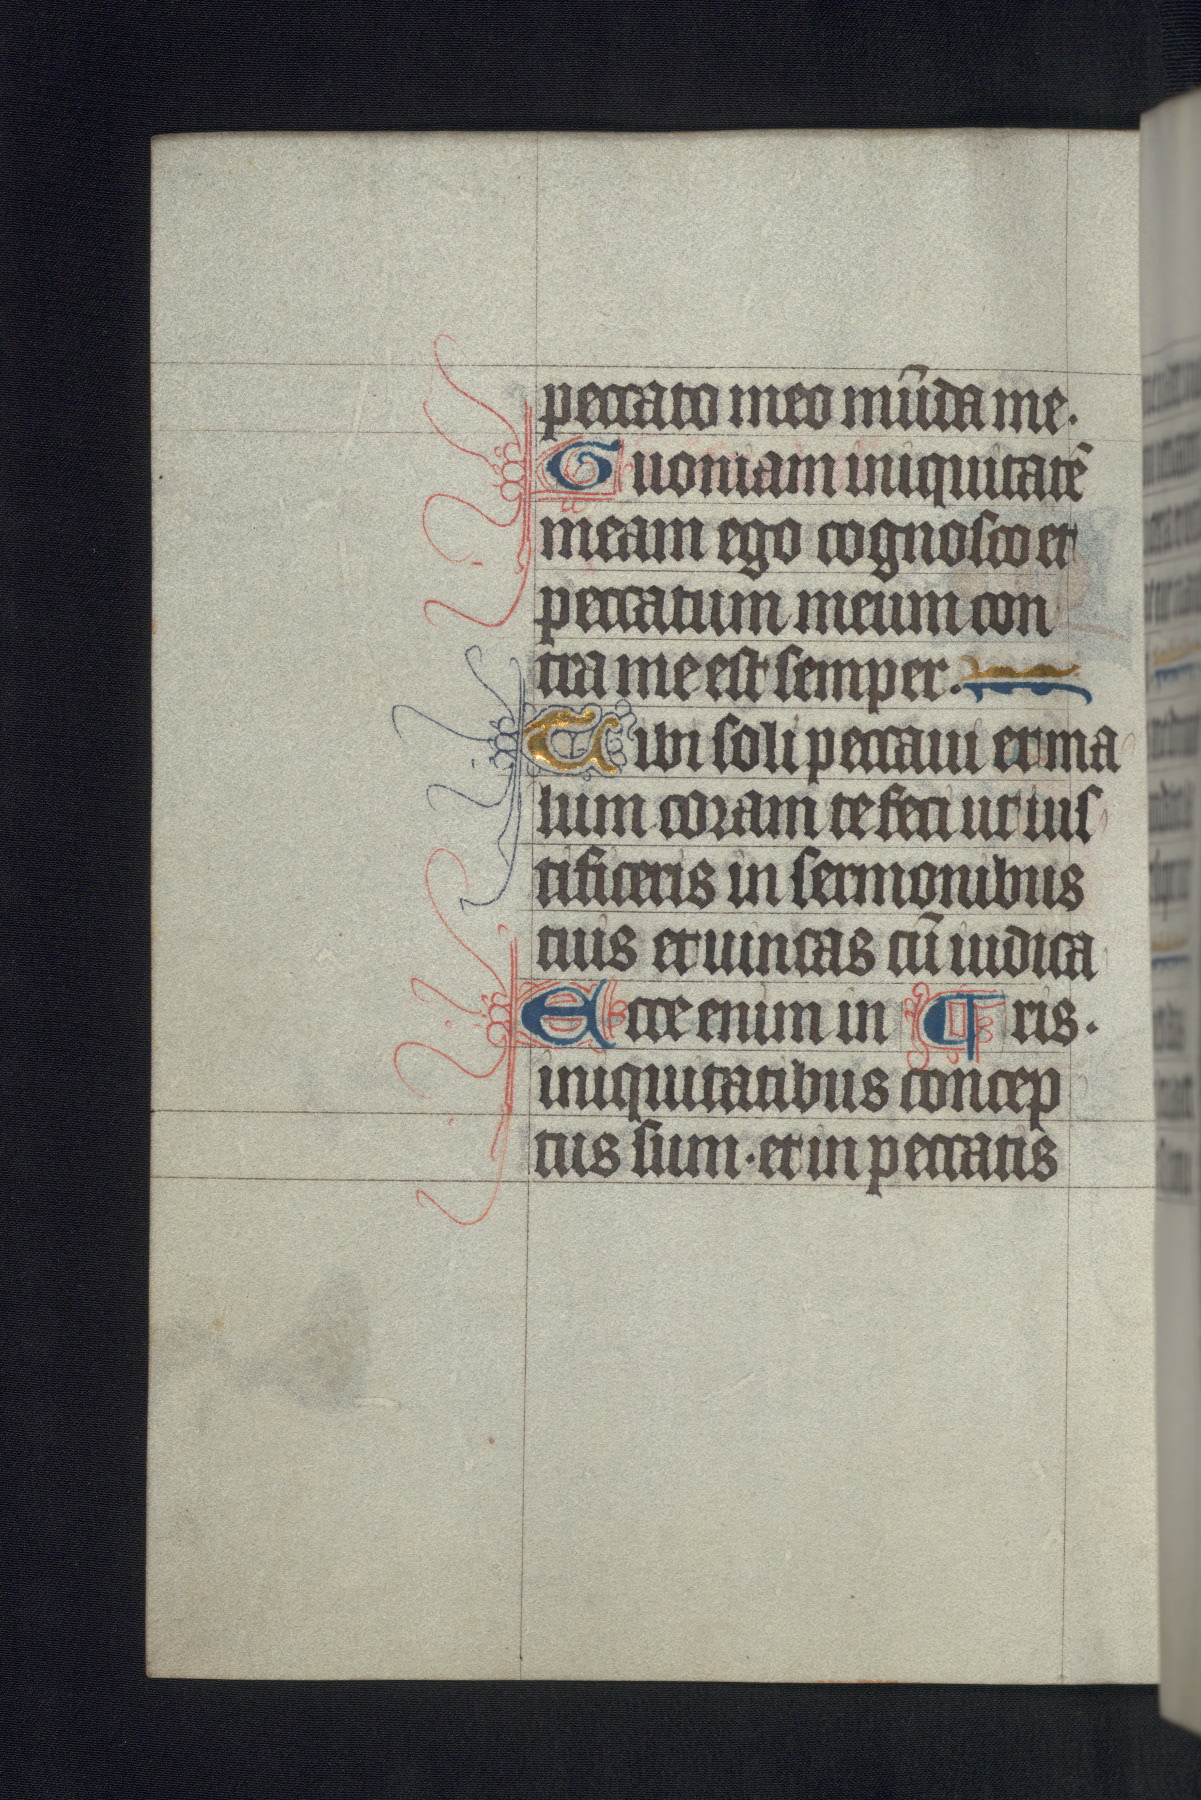 peccato meo mūda me.
Quoniam iniquitatē
meam ego cognosco et
peccatum meum con
tra me est semper.
Tibi soli peccaui et ma
lum coram te feci ut ius
tificeris in sermonibus
tuis et uincas cū iudica
Ecce enim in ¶ ris.
iniquitatibus concep
tus sum · et in peccatis